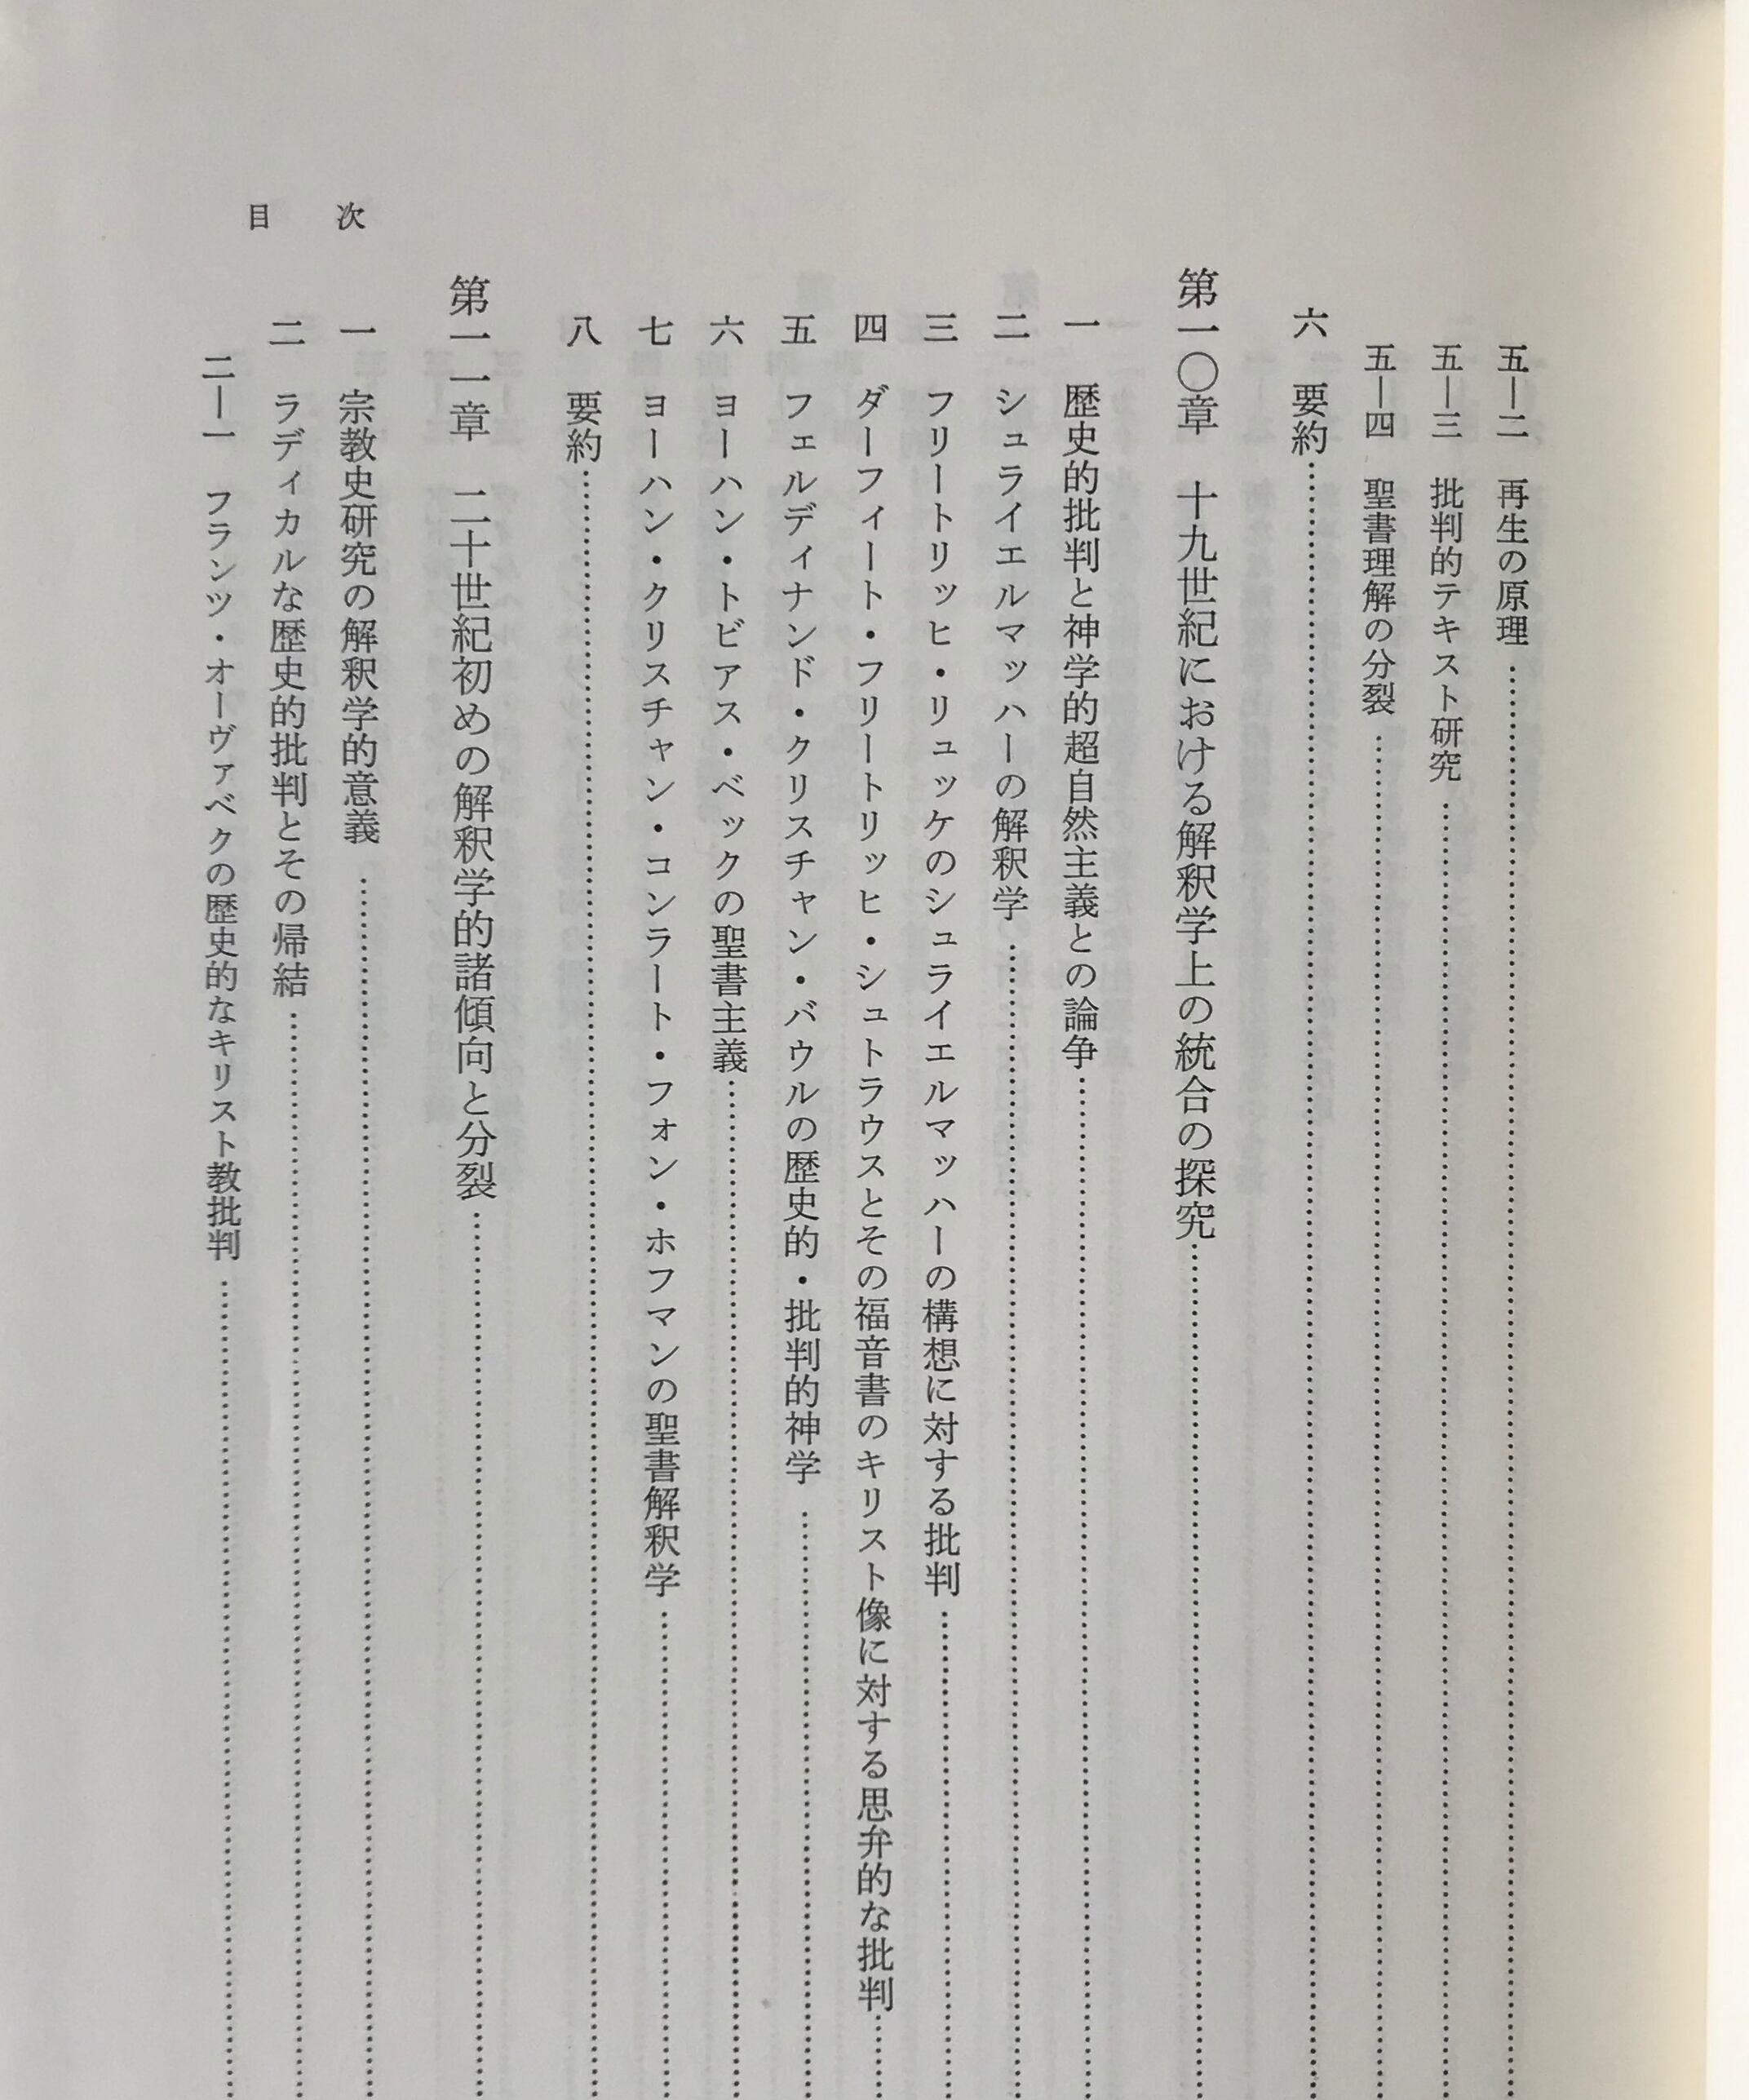 五―二　再生の原理
五―三　批判的テキスト研究
五―四　聖書理解の分裂
六　要約
第一〇章　十九世紀における解釈学上の統合の探究
一　歴史的批判と神学的超自然主義との論争
二　シュライエルマッハーの解釈学
三　フリートリッヒ・リュッケのシュライエルマッハーの構想に対する批判
四　ダーフィート・フリートリッヒ・シュトラウスとその福音書のキリスト像に対する思弁的な批判
五　フェルディナンド・クリスチャン・バウルの歴史的・批判的神学
六　ヨーハン・トビアス・ベックの聖書主義
七　ヨーハン・クリスチャン・コンラート・フォン・ホフマンの聖書解釈学
八　要約
第一一章　二十世紀初めの解釈学的諸傾向と分裂
一　宗教史研究の解釈学的意義
二　ラディカルな歴史的批判とその帰結
二―一　フランツ・オーヴァベクの歴史的なキリスト教批判
目次